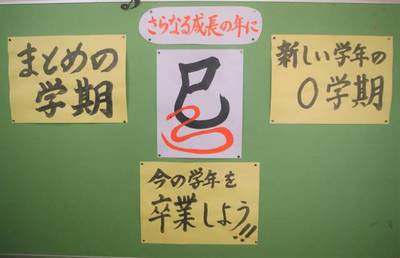 さらなる成長の年に
まとめの
学期
巳
新しい学年の
0学期
今の学年を
卒業しよう!!